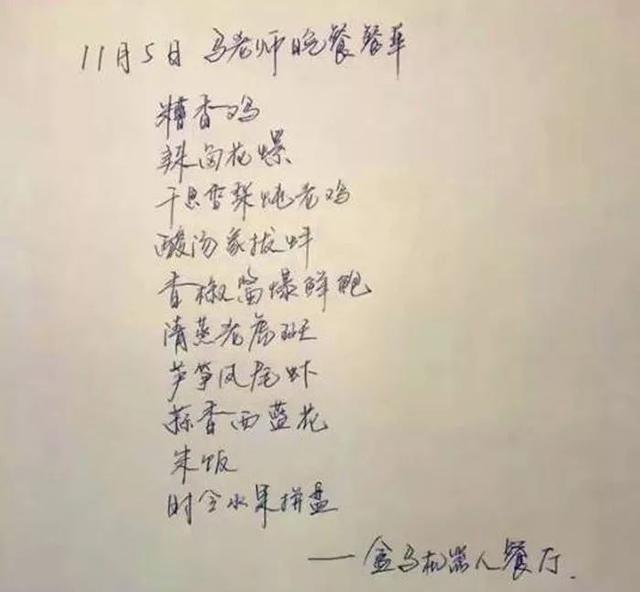 11月5日 马老师晚餐餐单
糟香鸡
辣卤花螺
干思雪梨炖老鸡
酸汤象拔蚌
香椒酱爆鲜鲍
清蒸老虎斑
芦笋凤尾虾
蒜香西蓝花
米饭
时令水果拼盘
——盒马机器人餐厅.